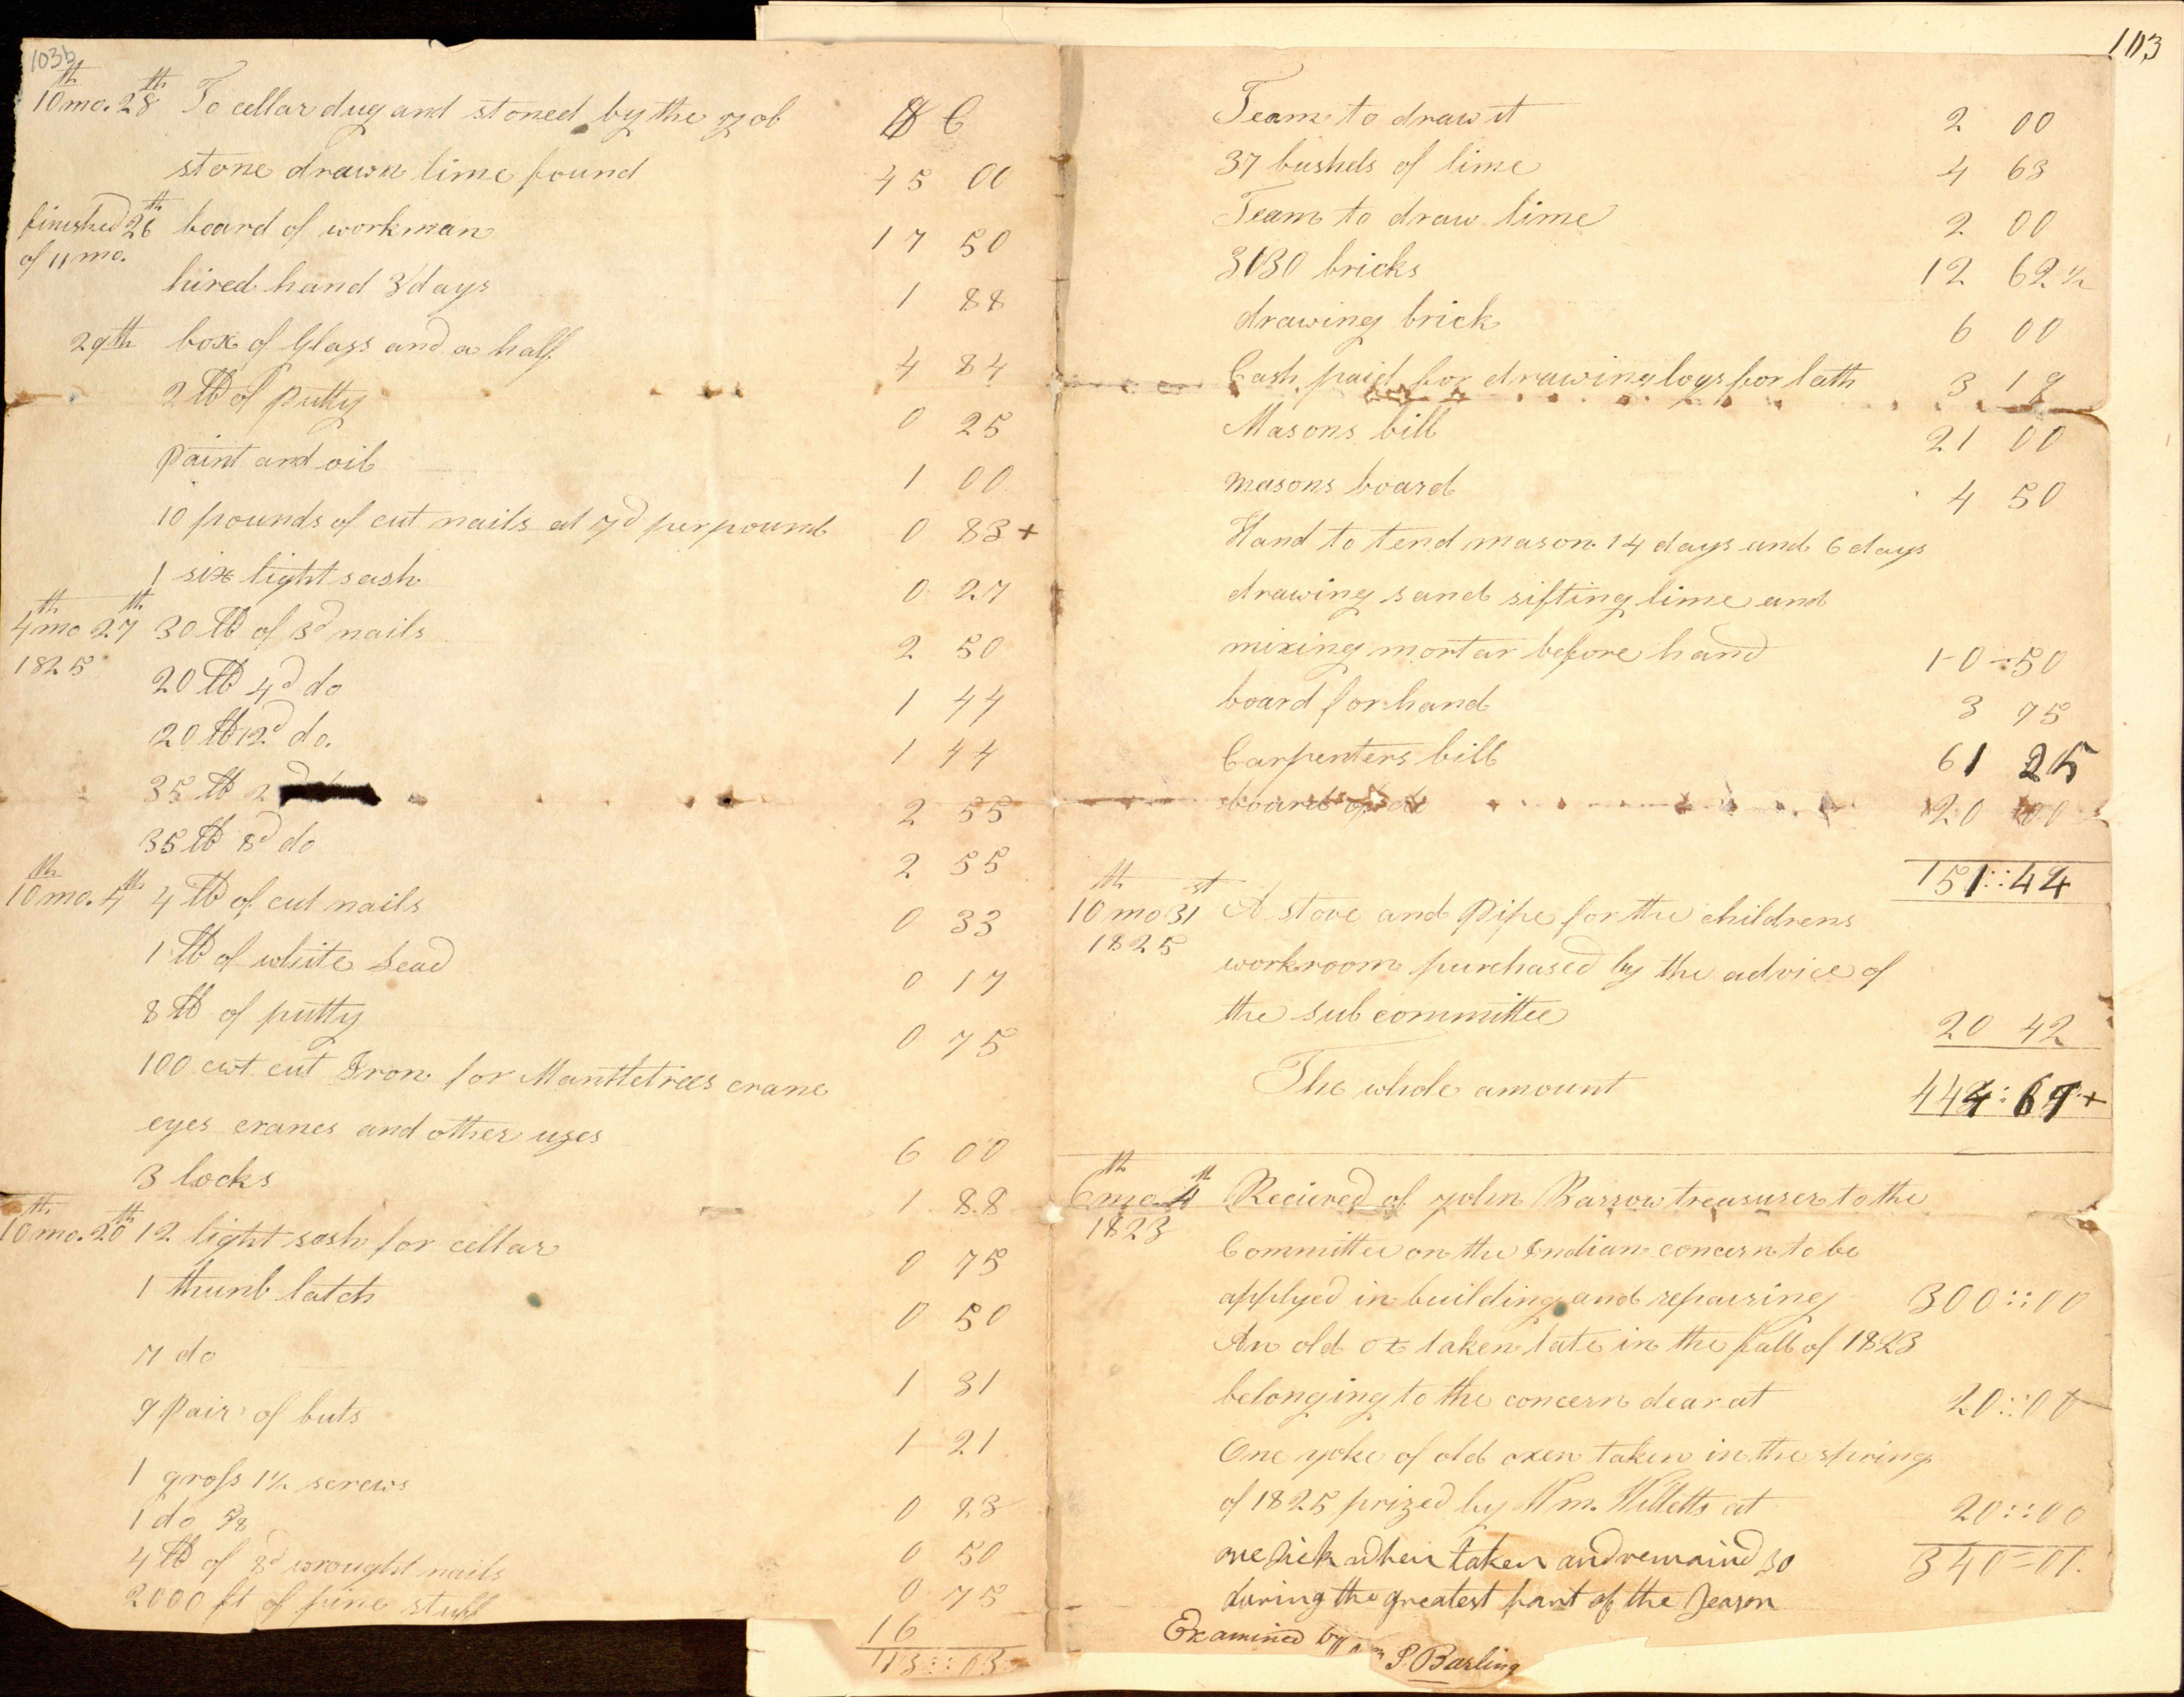 103b
10th mo. 28th To cellar dug and stoned by the gob $ C
stone drawn lime found 45 00
finished 26th board of workman 17 50
of 11 mo.
hired hand 3 days 1 88
29th box of Glass and a half 4 84
2 lb of putty 0 25
paint and oil 1 00
10 pounds of cut nails at 7d per pound 0 83+
1 six light sash 0 27
4th mo 27th 30 lb of 3d nails 2 50
1825
20 lb 4d do 1 44
20 lb 12d do. 1 44
35 lb 2 2 55
35 lb 8d do 2 55
10th mo. 4th 4 lb of cut nails 0 33
1 lb of white Lead 0 17
8 lb of putty 0 75
100 cwt cut Iron for Manttletrees crane
eyes cranes and other uses 6 00
3 locks 1 88
10th mo. 20th 12 light sash for cellar 0 75
1 thumb latch 0 50
7 do 1 31
9 pair of buts 1 21
1 gross 1¼ screws 0 83
1 do ⅝ 0 50
4 lb of 8d wrought nails 0 75
2000 ft of pine stuff 16
113::03
103
Team to draw it 2 00
37 bushels of lime 4 63
Team to draw lime 2 00
3030 bricks 12 62½
drawing brick 6 00
Cash paid for drawing logs for lath 3 18
Masons bill 21 00
masons board 4 50
Hand to tend mason 14 days and 6 days
drawing sand sifting lime and
mixing mortar before hand 10-50
board for hand 3 75
Carpenters bill 61 25
board of do 20 00
151::44
10th mo 31st A stove and Pipe for the childrens
1825
workroom purchased by the advice of
the sub committee 20 42
The whole amount 444:69+
6th mo. 4th Recieved of John Barrow treasurer to the
1823
Committee on the Indian concern to be
applyed in building and repairing 300::00
An old ox taken late in the fall of 1823
belonging to the concern dear at 20::00
One yoke of old oxen taken in the spring
of 1825 prized by Wm. Willetts at 20::00
one sick when taken and remaind so 340=00.
during the greatest part of the Season
Examined by S. Barling